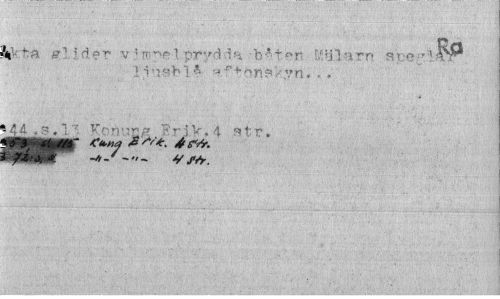 Ra
akta glider vimpelprydda båten Mälarn speglar
ljusblå aftonskyn...
44.s.13 Konung Erik.4 str.
53 s 115 Kung Erik. 4 str.
72.s. -"- -"- 4 str.